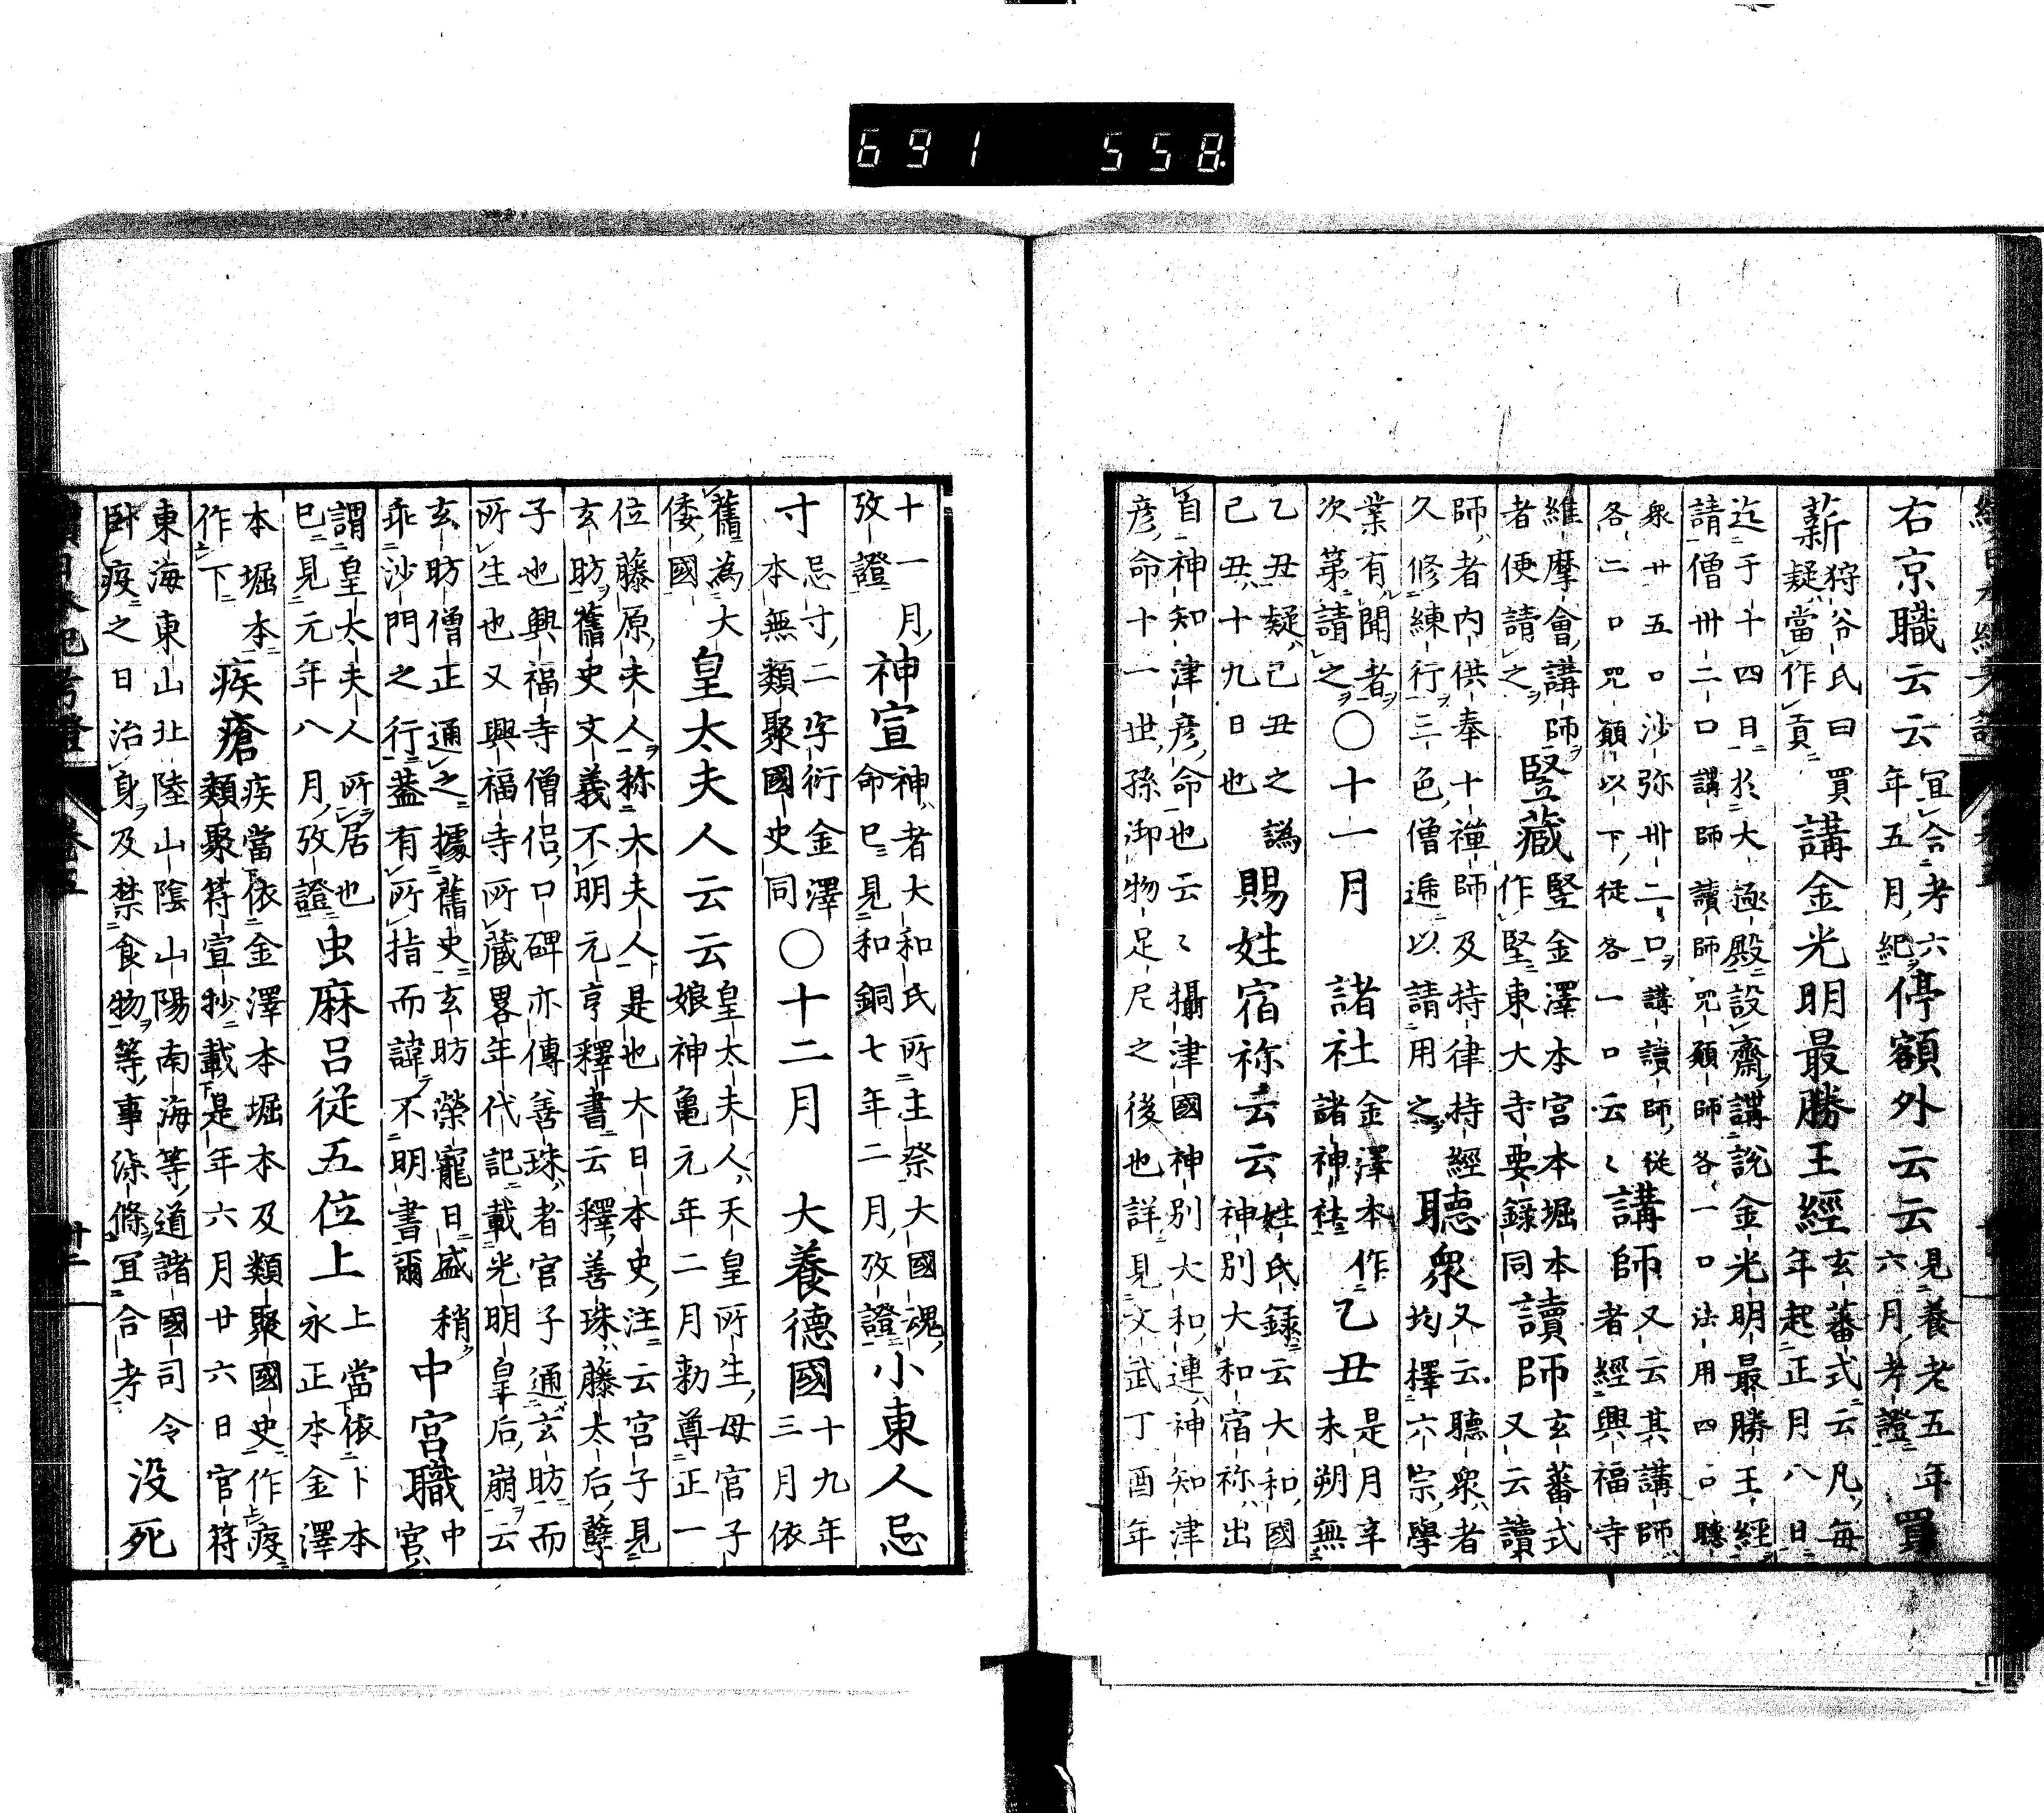 691 558
右京職云云宜合考六
年五月紀停額外云云見養老五年
六月考證買
薪狩谷氏曰買
疑當作貢講金光明最勝王經玄蕃式云凡毎
年起正月八日
迄于十四日於大極殿設齋講説金光明最勝王經
請僧卅二口講師讀師咒願師各一口法用四口聽
衆廿五口沙弥卅二口講讀師從
各二口咒願以下從各一口云々講師又云其講師
者經興福寺
維摩會講師
者便請之竪藏竪金澤本宮本堀本
作堅東大寺要録同讀師玄蕃式
又云讀
師者内供奉十禅師及持律持經
久修練行三色僧逓以請用之聽衆又云聽衆者
均擇六宗學
業有聞者
次第請之〇十一月諸社金澤本作
諸神社乙丑是月辛
未朔無
乙丑疑己丑之譌
己丑十九日也賜姓宿祢云云姓氏録云大和國
神別大和宿祢出
自神知津彦命也云々攝津國神別大和連神知津
彦命十一世孫御物足尼之後也詳見文武丁酉年
十一月
攷證神宣神者大和氏所主祭大國魂
命已見和銅七年二月攷證小東人忌
寸忌寸二字衍金澤
本無類聚國史同〇十二月大養德國十九年
三月依
舊為大
倭國皇太夫人云云皇太夫人天皇所生母宮子
娘神亀元年二月勅尊正一
位藤原夫人称大夫人是也大日本史注云宮子見
玄昉舊史文義不明元亨釋書云釋善珠藤太后孽
子也興福寺僧侶口碑亦傳善珠者宮子通玄昉而
所生也又興福寺所藏畧年代記載光明皇后崩云
玄昉僧正通之據舊史玄昉榮寵日盛稍
乖沙門之行蓋有所指而諱不明書爾中宮職中
宮
謂皇太夫人所居也
已見元年八月攷證虫麻呂從五位上上當依卜本
永正本金澤
本堀本
作下疾瘡疾當依金澤本堀本及類聚國史作疫
類聚符宣抄載是年六月廿六日官符
東海東山北陸山陰山陽南海等道諸國司令
卧疫之日治身及禁食物等事漆條宜合考没死